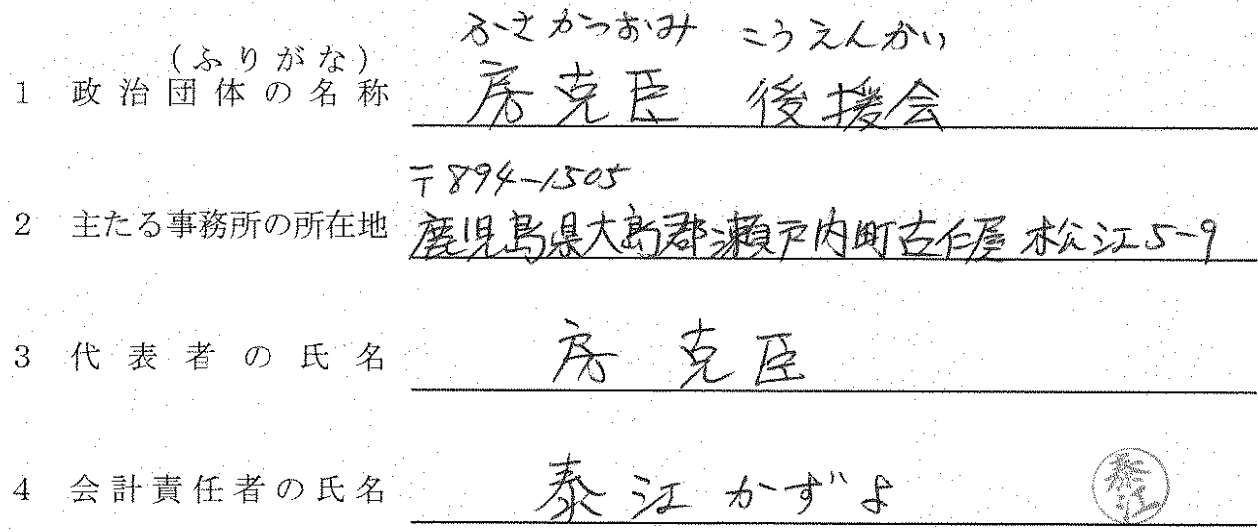 (ふりがな) ふさかつおみ こうえんかい
1 政治団体の名称 房克臣 後援会
〒894-1505
2 主たる事務所の所在地 鹿児島県大島郡瀬戸内町古仁屋松江5-9
3 代表者の氏名 房 克臣
4 会計責任者の氏名 泰江かずよ
泰江